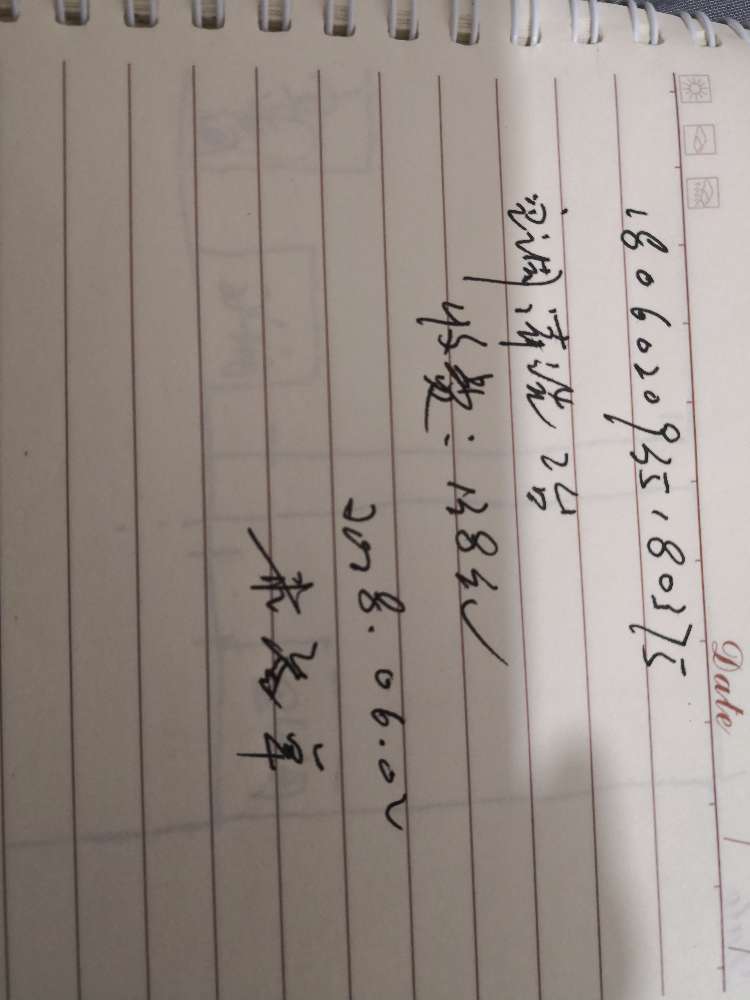 Date
1806020935180375
空调清洗2台
收款：138元
2018.06.02